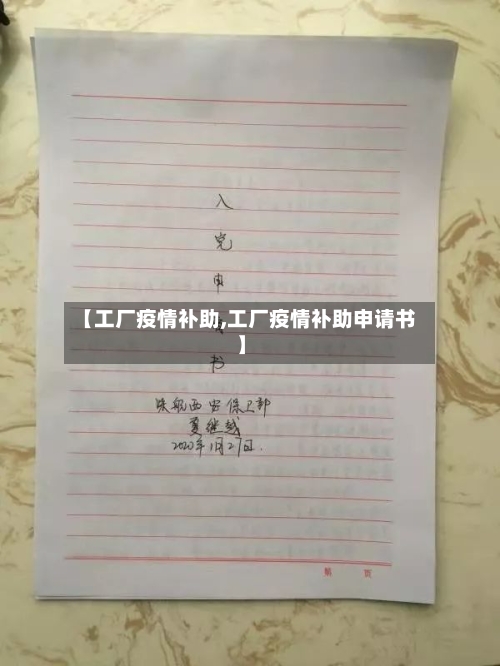 入
党
申
【工厂疫情补助,工厂疫情补助申请书
】
书
西安保卫部
夏继越
2020年1月27日.